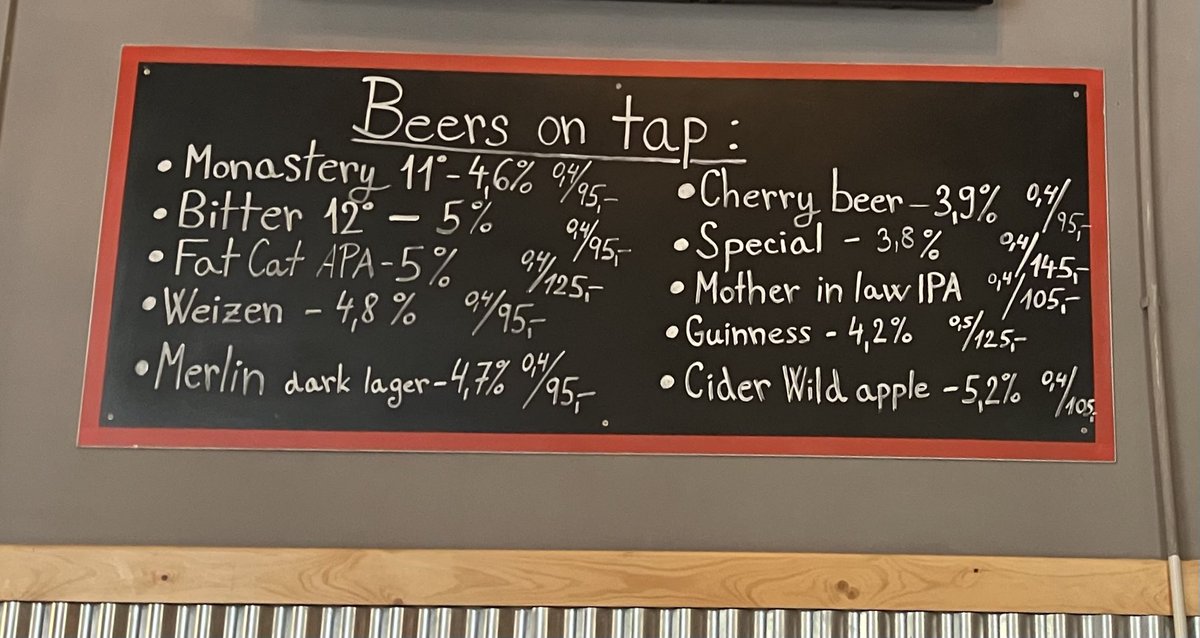 Beers on tap:
• Monastery 11° - 4,6% 0,4/95,-
• Bitter 12° — 5% 0,4/95,-
• Fat Cat APA - 5% 0,4/125,-
• Weizen - 4,8% 0,4/95,-
• Merlin dark lager - 4,7% 0,4/95,-
• Cherry beer - 3,9% 0,4/95,-
• Special - 3,8% 0,4/145,-
• Mother in law IPA 0,4/105,-
• Guinness - 4,2% 0,5/125,-
• Cider Wild apple - 5,2% 0,4/105,-